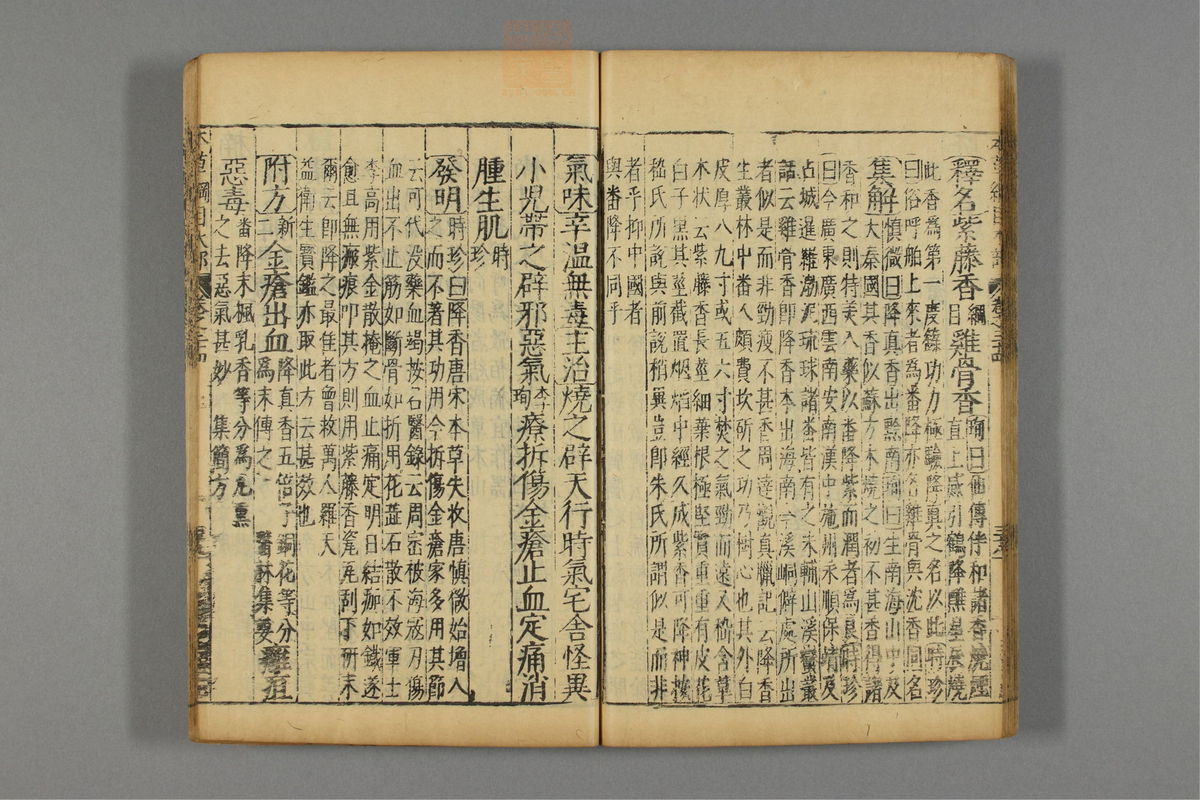 釋名紫藤香綱目雞骨香珣曰仙傳伴和諸香燒煙
直上感引鶴降醮星辰燒
此香為第一度籙功力極驗降真之名以此時珍
曰俗呼舶上來者為番降亦名雞骨與沈香同名
集解慎微曰降真香出黔南珣曰生南海山中及
大秦國其香似蘇方木燒之初不甚香得諸
香和之則特美入藥以番降紫而潤者為良時珍
曰今廣東廣西雲南安南漢中施州永順保靖及
占城暹羅渤泥琉球諸番皆有之朱輔山溪蠻叢
話云雞骨香即降香本出海南今溪峒僻處所出
者似是而非勁瘦不甚香周達觀真臘記云降香
生叢林中番人頗費坎斫之功乃樹心也其外白
皮厚八九寸或五六寸焚之氣勁而遠又嵇含草
木狀云紫藤香長莖細葉根極堅實重重有皮花
白子黑其莖截置烟焰中經久成紫香可降神按
嵇氏所說與前說稍異豈即朱氏所謂似是而非
者乎抑中國者
與番降不同乎
氣味辛溫無毒主治燒之辟天行時氣宅舍怪異
小兒帶之辟邪惡氣李珣療折傷金瘡止血定痛消
腫生肌時珍
發明時珍曰降香唐宋本草失收唐慎微始增入
之而不著其功用今折傷金瘡家多用其節
云可代没藥血竭按名醫錄云周崈被海寇刃傷
血出不止筋如斷骨如折用花蕊石散不效軍士
李高用紫金散掩之血止痛定明日結痂如鐵遂
愈且無瘢痕叩其方則用紫藤香瓷瓦刮下研末
爾云即降之最佳者曾救萬人羅天
益衛生寶鑑亦取此方云甚效也
附方新二金瘡出血降真香五倍子銅花等分
為末傅之醫林集要癰疽
惡毒番降末楓乳香等分為丸熏
之去惡氣甚妙集簡方